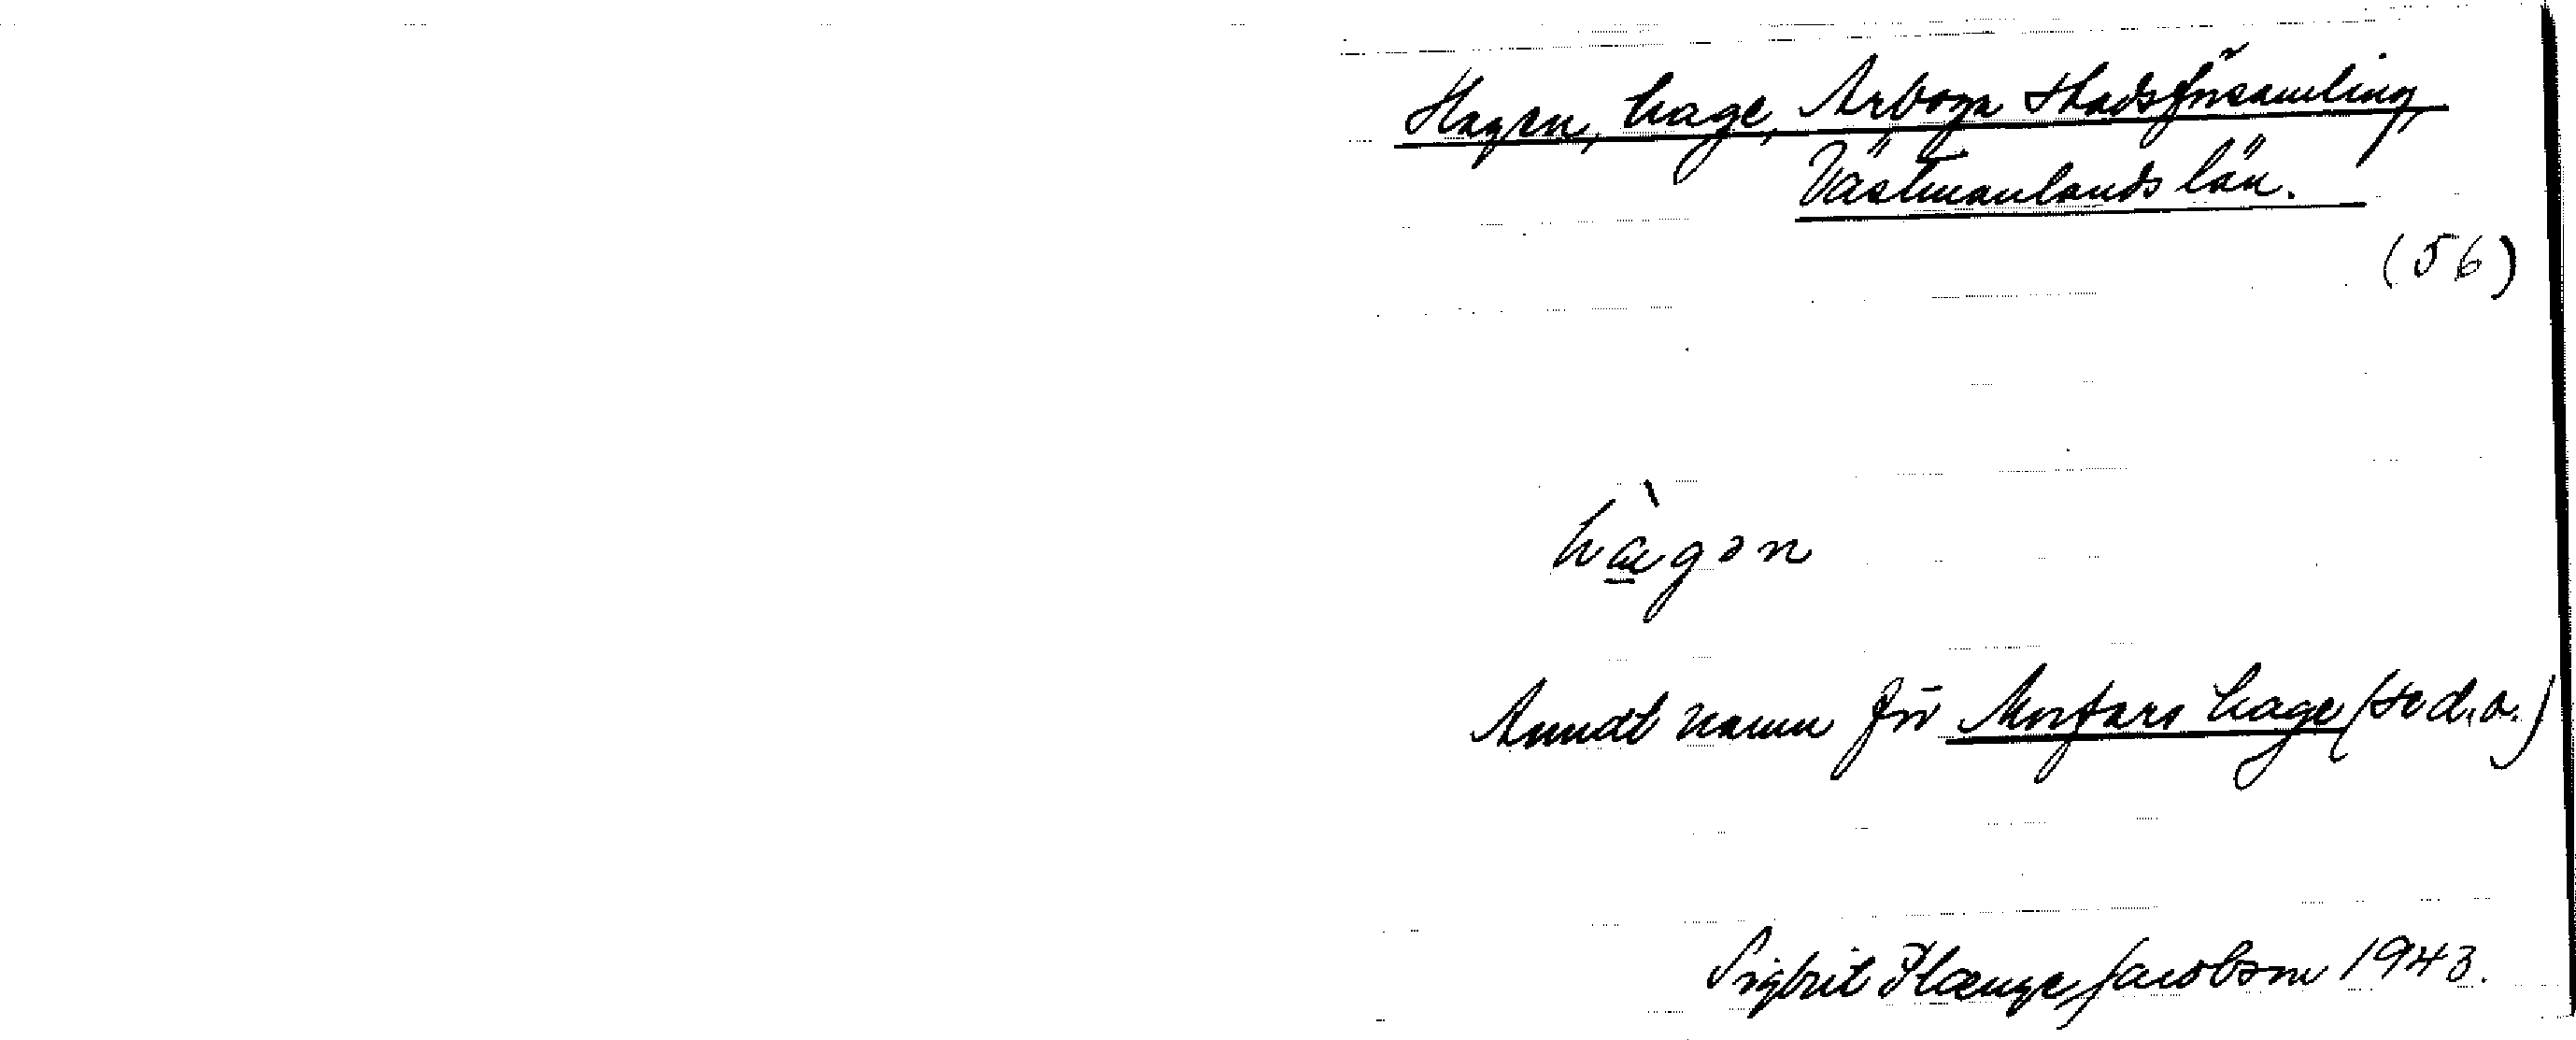 Hagen, hage, Arboga stadsförsamling,
Västmanlands län.
(56)
hὰ̠gən
Annat namn för Morfars hage (se d.o.)
Sigbrit Plænge Jacobson 1943.